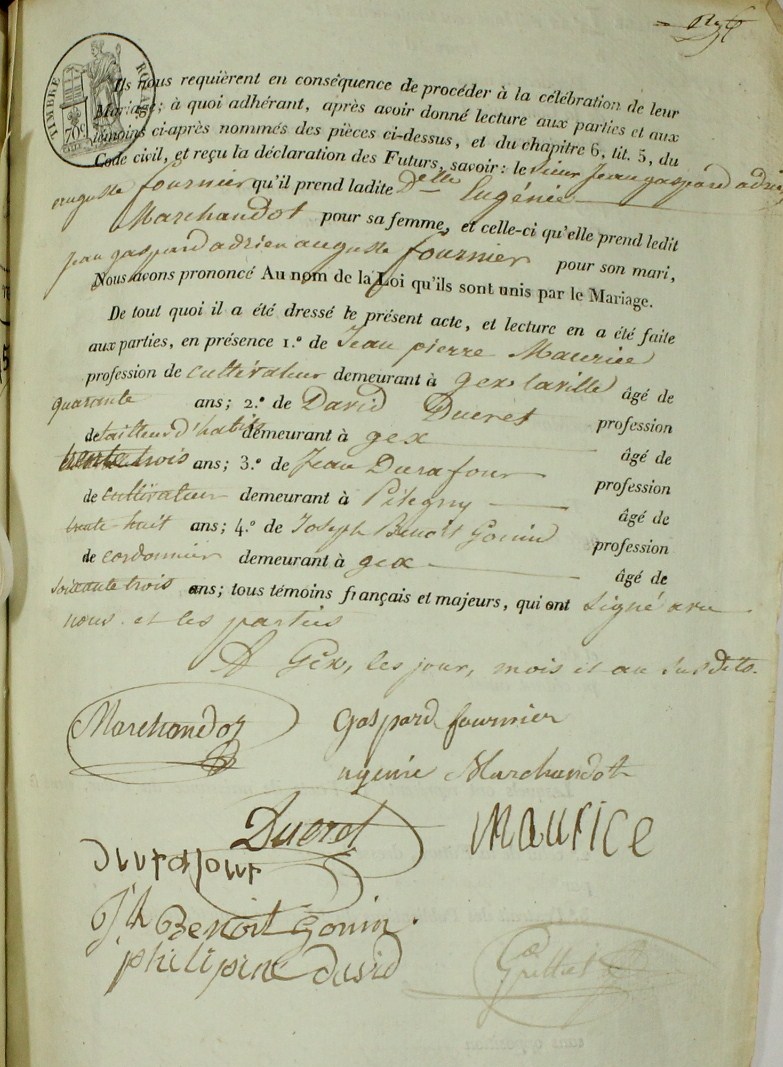 TIMBRE ROYAL
70c
Ils nous requièrent en conséquence de procéder à la célébration de leur
Mariage; à quoi adhérant, après avoir donné lecture aux parties et aux
témoins ci-après nommés des pièces ci-dessus, et du chapitre 6, tit. 5, du
Code civil, et reçu la déclaration des Futurs, savoir: le Sieur Jean gaspard adrien
auguste fournier qu'il prend ladite Delle Eugénie
Marchandot pour sa femme, et celle-ci qu'elle prend ledit
Jean gaspard adrien auguste fournier pour son mari,
Nous avons prononcé Au nom de la Loi qu'ils sont unis par le Mariage.
De tout quoi il a été dressé le présent acte, et lecture en a été faite
aux parties, en présence 1.º de Jean pierre Maurice
profession de cultivateur demeurant à gex laville âgé de
quarante ans; 2.º de David Ducret profession
de tailleur d'habits demeurant à gex âgé de
trente trois ans; 3.º de Jean Durafour profession
de cultivateur demeurant à Pitegny âgé de
trente-huit ans; 4.º de Joseph Benoit Gonin profession
de cordonnier demeurant à gex âgé de
soixante trois ans; tous témoins français et majeurs, qui ont signé avec
nous et les parties
A Gex, les jour, mois et an susdits.
Marchandot gaspard fournier
ugenie Marchandot
Ducret maurice
Durafour
Jh Benoit Gonin
philipine david